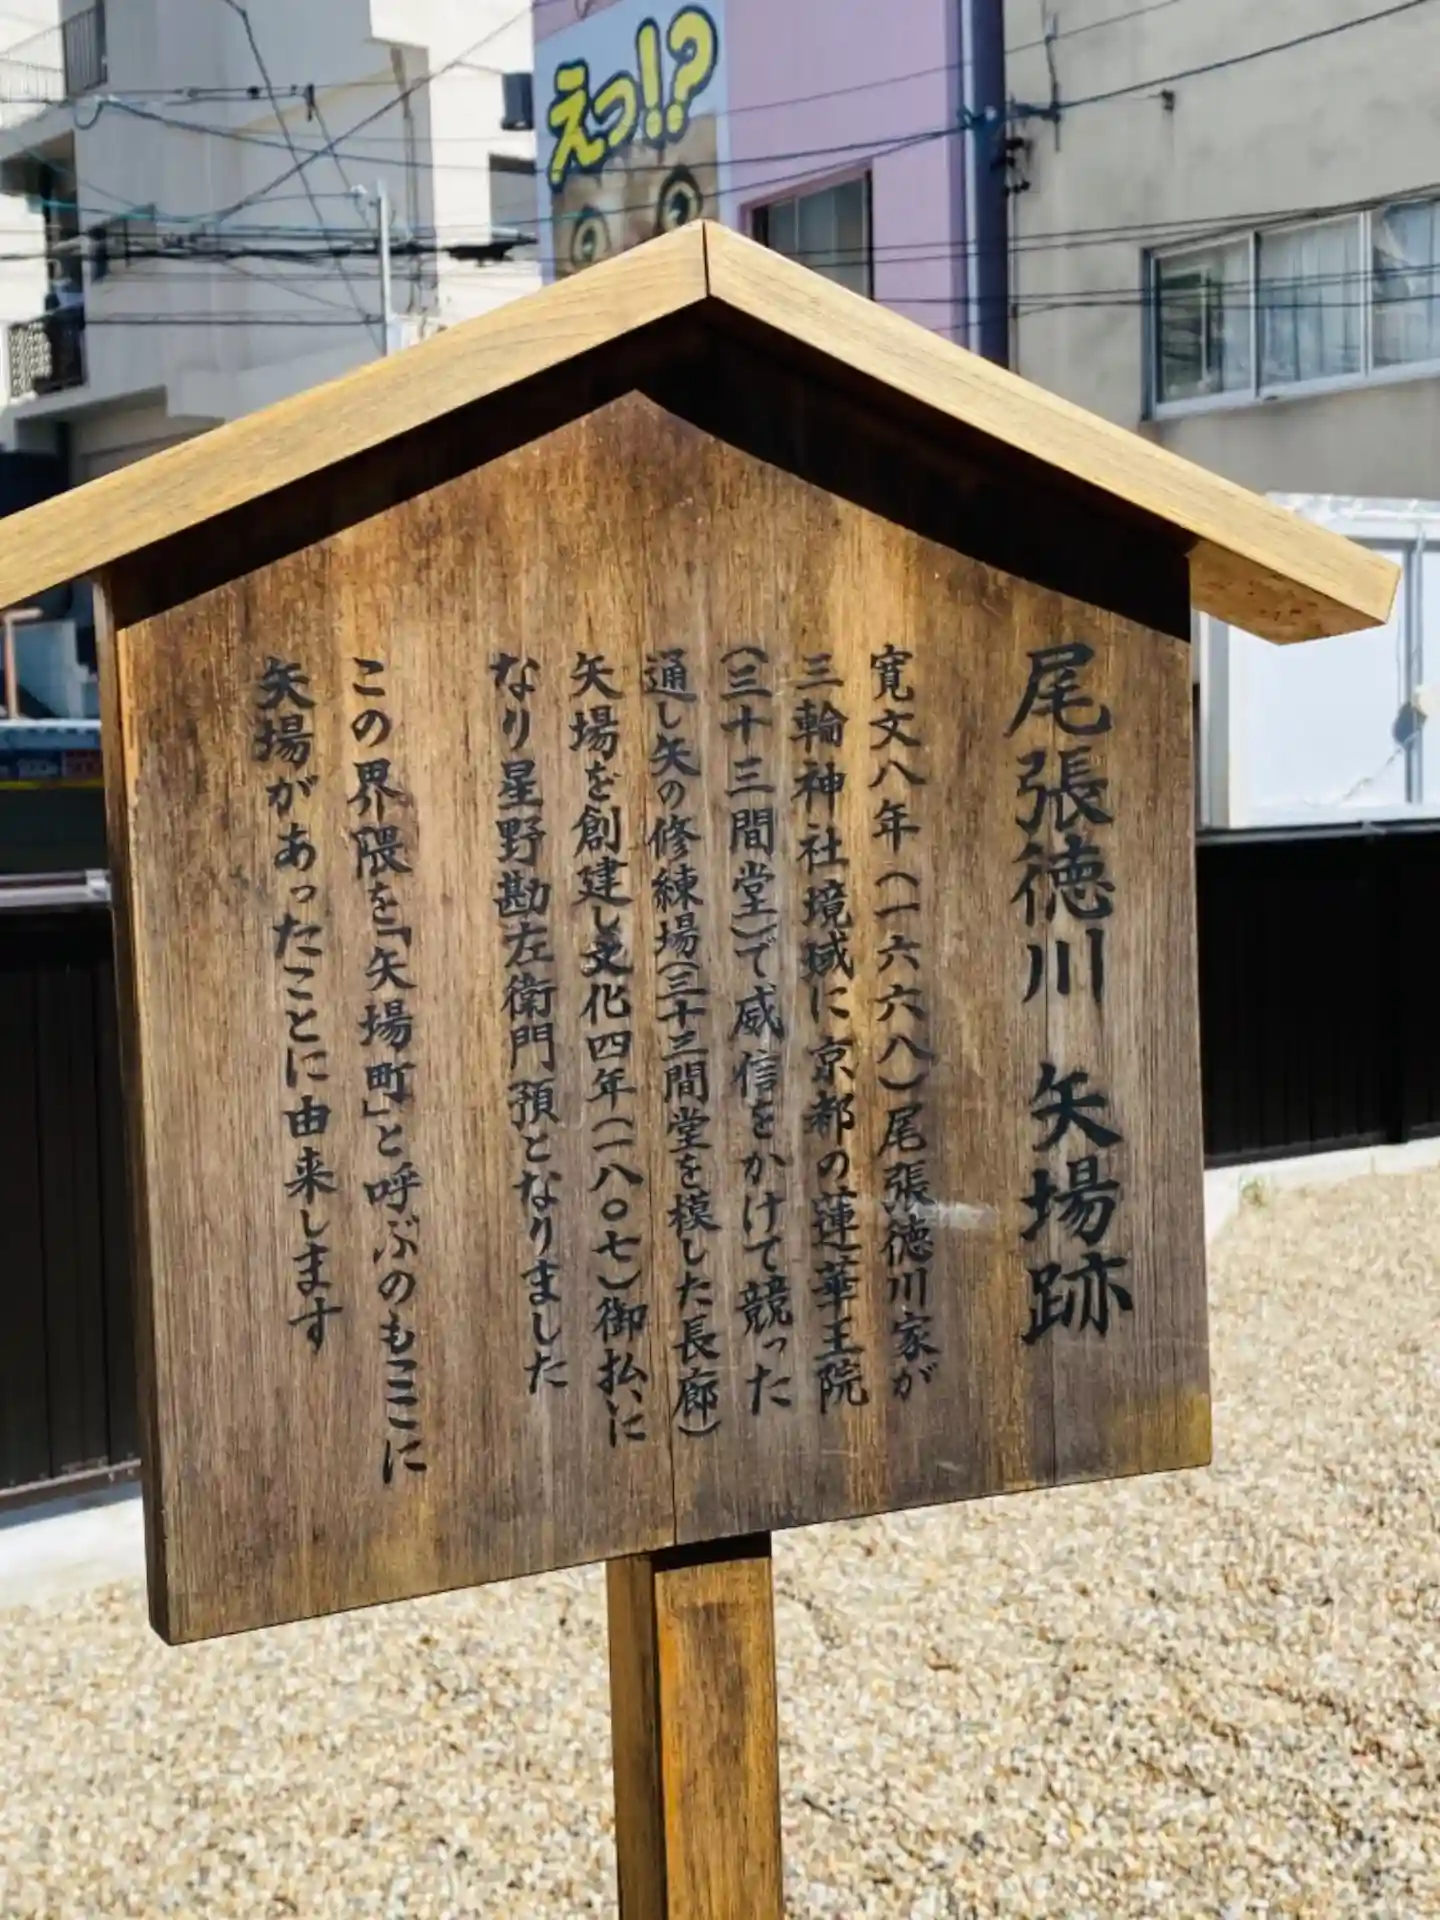 えっ!?
尾張徳川 矢場跡
寛文八年(一六六八)尾張徳川家が
三輪神社境域に京都の蓮華王院
(三十三間堂)で威信をかけて競った
通し矢の修練場(三十三間堂を模した長廊)
矢場を創建し文化四年(一八〇七)御払いに
なり星野勘左衛門預となりました
この界隈を「矢場町」と呼ぶのもここに
矢場があったことに由来します